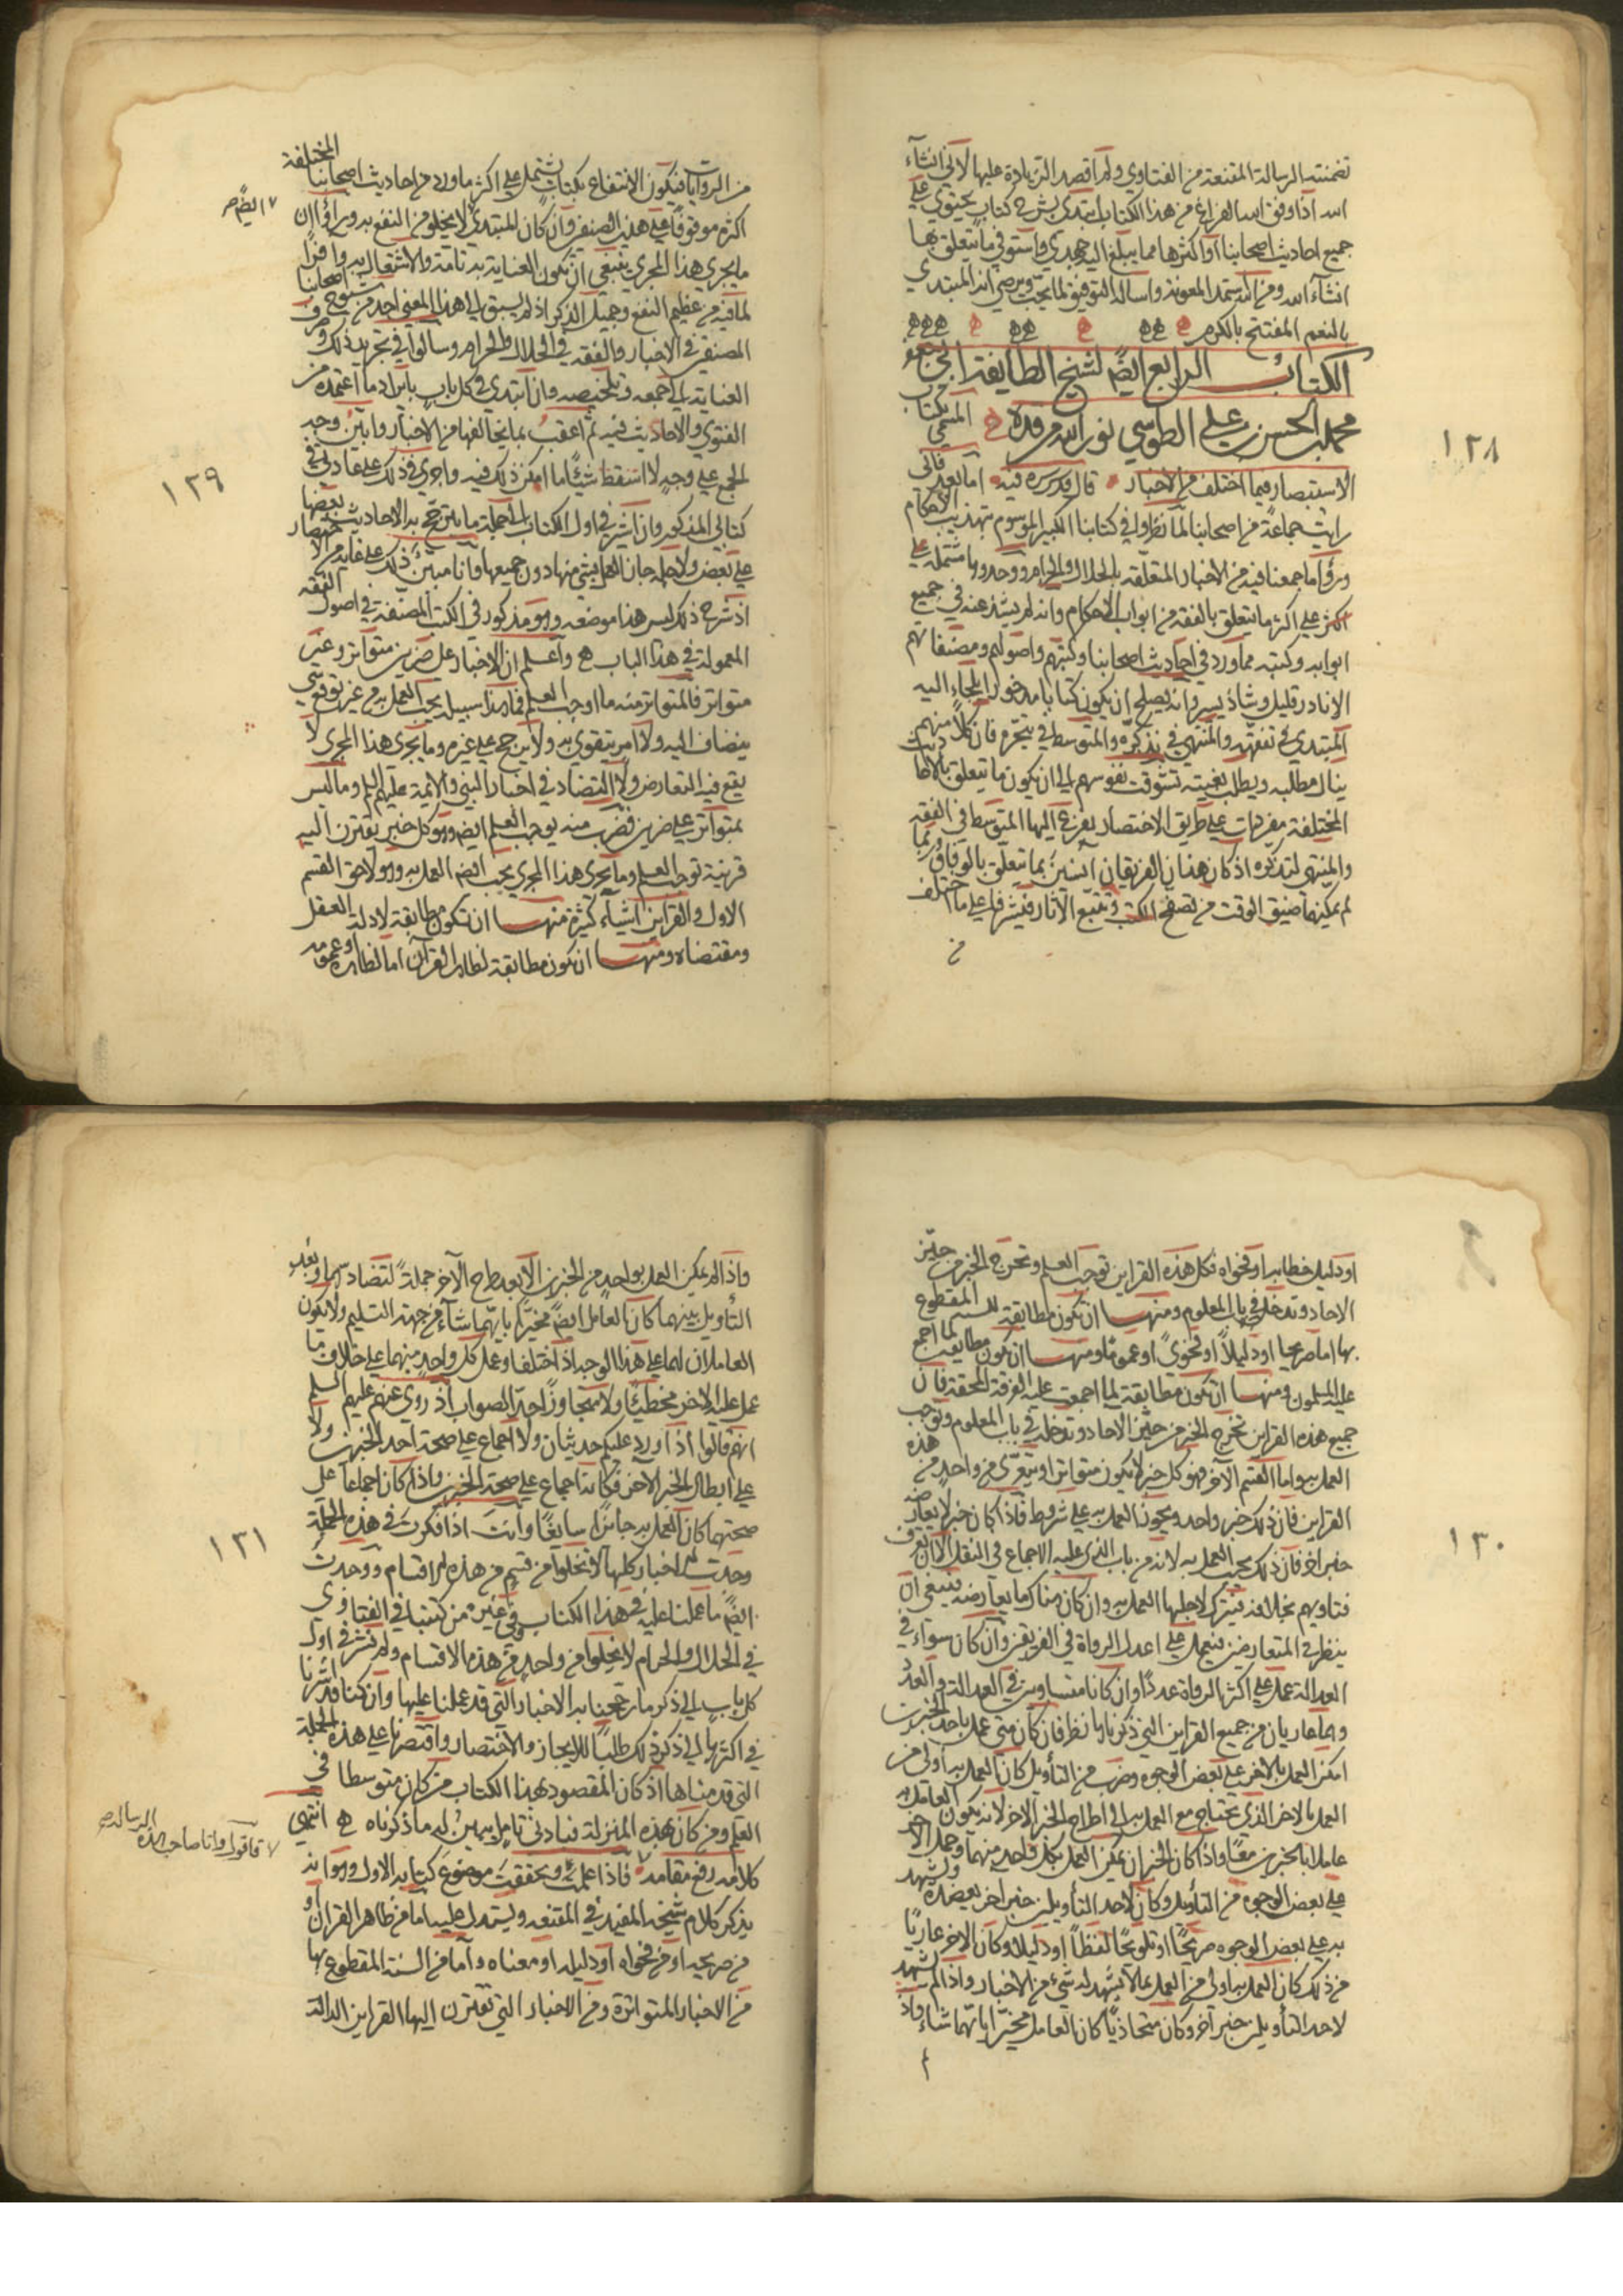 تضمنته الرسالة المقنعة من الفتاوي ولم اقصد الزيادة عليها لاني انشآء
الله اذا وفق الله الفراغ من هذا الكتاب ابتدئ بشرح كتاب يحتوي على
جميع احاديث اصحابنا او اكثرها مما يبلغ اليه جهدي واستوفي ما يتعلق بها
انشآء الله ومن الله استمد المعونة واساله التوفيق لما يحب ويرضى انه المبتدي
بالنعم المفتتح بالكرم
الكتاب الرابع ايضً لشيخ الطايفة ابي جعفر
محمد بن الحسن بن علي الطوسي نور الله مرقده المسمى بكتاب
الاستبصار فيما اختلف من الاخبار قال قدس سره فيه اما بعد فاني
رايت جماعة من اصحابنا لما نظروا في كتابنا الكبير الموسوم بتهذيب الاحكام
وراوا ما جمعنا فيه من الاخبار المتعلقة بالحلال والحرام ووجدوها مشتملة على
اكثر ما يتعلق بالفقه من ابواب الاحكام وانه لم يشذ عنه في جميع
ابوابه وكتبه مما ورد في احاديث اصحابنا وكتبهم واصولهم ومصنفاتهم
الا نادر قليل وشاذ يسير وانه يصلح ان يكون كتابا مذخورا يلجاء اليه
المبتدي في تفقهه والمنتهي في تذكره والمتوسط في تبحره فان كلا منهم
ينال مطلبه ويطلب بغيته تشوقت نفوسهم الى ان يكون ما يتعلق بالاحاديث
المختلفة مفردات على طريق الاختصار يفزع اليها المتوسط في الفقه
والمنتهي لتذكره اذ كان هذان الفريقان انسين بما يتعلق بالوفاق وربما
لم يمكنهما ضيق الوقت من تصفح الكتب وتتبع الاثار فيشرفا على ما اختلف
من
١٢٨
من الروايات فيكون الانتفاع بكتاب يشتمل على اكثر ما ورد من احاديث اصحابنا المختلفة
اكثره موقوفا على هذين الصنفين وان كان المبتدي لا يخلو من النفع به ورأوا ان
ايضً صح
ما يجري هذا المجرى ينبغي ان تكون العناية به تامة والاشتغال به وافرا
لما فيه من عظيم النفع وجميل الذكر اذ لم يسبق الى هذا المعنى احد من شيوخ اصحابنا
المصنفين في الاخبار والفقه في الحلال والحرام وسالوا في تجريد ذلك وصرف
العناية الى جمعه وتلخيصه وان ابتدي في كل باب بايراد ما اعتمده من
الفتوى والاحاديث فيه ثم اعقب بما يخالفها من الاخبار وابين وجه
الجمع على وجه لا اسقط شيئا ما امكن ذلك فيه واجري في ذلك على عادتي في
كتابي المذكور وان اشير في اول الكتاب الى جملة ما يترجح به الاحاديث بعضها
على بعض ولاجله جاز العمل بشئ منها دون جميعها وانا مبين ذلك على غاية من الاختصار
اذ شرح ذلك ليس هذا موضعه وهو مذكور في الكتب المصنفة في اصول الفقه
المعمولة في هذا الباب واعلم ان الاخبار على ضربين متواتر وغير
متواتر فالمتواتر منه ما اوجب العلم فما هذا سبيله يجب العمل به من غير توقع شي
ينضاف اليه ولا امر يتقوى به ولا يرجح على غيره وما يجري هذا المجرى لا
يقع فيه التعارض ولا التضاد في اخبار النبي والايمة عليهم السلم وما ليس
بمتواتر على ضربين فضرب منه يوجب العلم ايضً وهو كل خبر يقترن اليه
قرينة توجب العلم وما يجري هذا المجرى يجب ايضً العمل به وهو لاحق القسم
الاول والقراين اشيآء كثيرة منها ان تكون مطابقة لادلة العقل
ومقتضاه ومنها ان تكون مطابقة لظاهر القرآن اما لظاهره او عمومه
١٢٩
او دليل خطابه او فحواه فكل هذه القراين توجب العلم وتخرج الخبر من حيز
الاحاد وتدخله في باب المعلوم ومنها ان تكون مطابقة للسنة المقطوع
بها اما صريحا او دليلاً او فحوىً او عموما ومنها ان تكون مطابقة لما اجمع
عليه المسلمون ومنها ان تكون مطابقة لما اجمعت عليه الفرقة المحقة فان
جميع هذه القراين تخرج الخبر من حيز الاحاد وتدخله في باب المعلوم وتوجب
العمل به واما القسم الآخر فهو كل خبر لا يكون متواترا ويتعرى من واحد من هذه
القراين فان ذلك خبر واحد ويجوز العمل به على شروط فاذا كان خبر لا يعارضه
خبر اخر فان ذلك يجب العمل به لانه من باب الذي عليه الاجماع في النقل الا ان يعرف
فتاويهم بخلافه فيترك لاجلها العمل به وان كان هناك ما يعارضه ينبغي ان
ينظر في المتعارضين فيعمل على اعدل الرواة في الفريقين وان كان سواء في
العدالة عمل على اكثر الرواة عددًا وان كانا متساويين في العدالة والعدد
وهما عاريان من جميع القراين التي ذكرناها نظر فان كان متى عمل باحد الخبرين
امكن العمل بالاخر على بعض الوجوه وضرب من التأويل كان العمل به اولى من
العمل بالاخر الذي يحتاج مع العمل به الى اطراح الخبر الاخر لانه يكون العامل به
عاملا بالخبرين معًا واذا كان الخبران يمكن العمل بكل واحد منهما وحمل الآخر
على بعض الوجوه من التأويل وكان لاحد التأويلين خبر اخر يعضده او يشهد
به على بعض الوجوه صريحًا او تلويحًا لفظاً او دليلا وكان الاخر عاريًا
من ذلك كان العمل به اولى من العمل بما لا يشهد له شيء من الاخبار واذا لم يشهد
لاحد التأويلين خبر آخر وكان متحاذيًا كان العامل مخيرًا بايهما شاء واذ
١٣٠
واذا لم يمكن العمل بواحد من الخبرين الا بعد طرح الآخر جملةً لتضادهما وبعد
التأويل بينهما كان العامل ايضً مخيرًا بايهما شاء من جهة التسليم ولا يكون
العاملان بهما على هذا الوجه اذا اختلفا وعمل كل واحد منهما على خلاف ما
عمل عليه الاخر مخطئا ولا متجاوزًا حد الصواب اذ روي عنهم عليهم السلم
انهم قالوا اذا اورد عليكم حديثان ولا اجماع على صحة احد الخبرين ولا
على ابطال الخبر الآخر فكانه اجماع على صحة الخبرين واذا كان اجماعا على
صحتهما كان العمل به جائزا سايغًا وانت اذا فكرت في هذه الجملة
وجدت الاخبار كلها لا تخلو من قسم من هذه الاقسام ووجدت
ايضً ما عملنا عليه في هذا الكتاب وفي غيره من كتبنا في الفتاوى
في الحلال والحرام لا يخلو من واحد من هذه الاقسام ولم نشر في اول
كل باب الى ذكر ما رجحنا به الاخبار التي قد عملنا عليها وان كنا قد اشرنا
في اكثرها الى ذكر ذلك طلبًا للايجاز والاختصار واقتصرنا على هذه الجملة
التي قدمناها اذ كان المقصود بهذا الكتاب من كان متوسطا في
العلم ومن كان بهذه المنزلة فبادنى تامل يبين له ما ذكرناه انتهى
فاقول وانا صاحب هذه الرسالة صح
كلامه رفع مقامه فاذا علمت وتحققت موضوع كتابه الاول وهو انه
يذكر كلام شيخه المفيد في المقنعه ويستدل عليه اما من ظاهر القرآن او
من صريحه او من فحواه او دليله او معناه واما من السنة المقطوع بها
من الاخبار المتواترة ومن الاخبار التي تقترن اليها القراين الدالة
١٣١